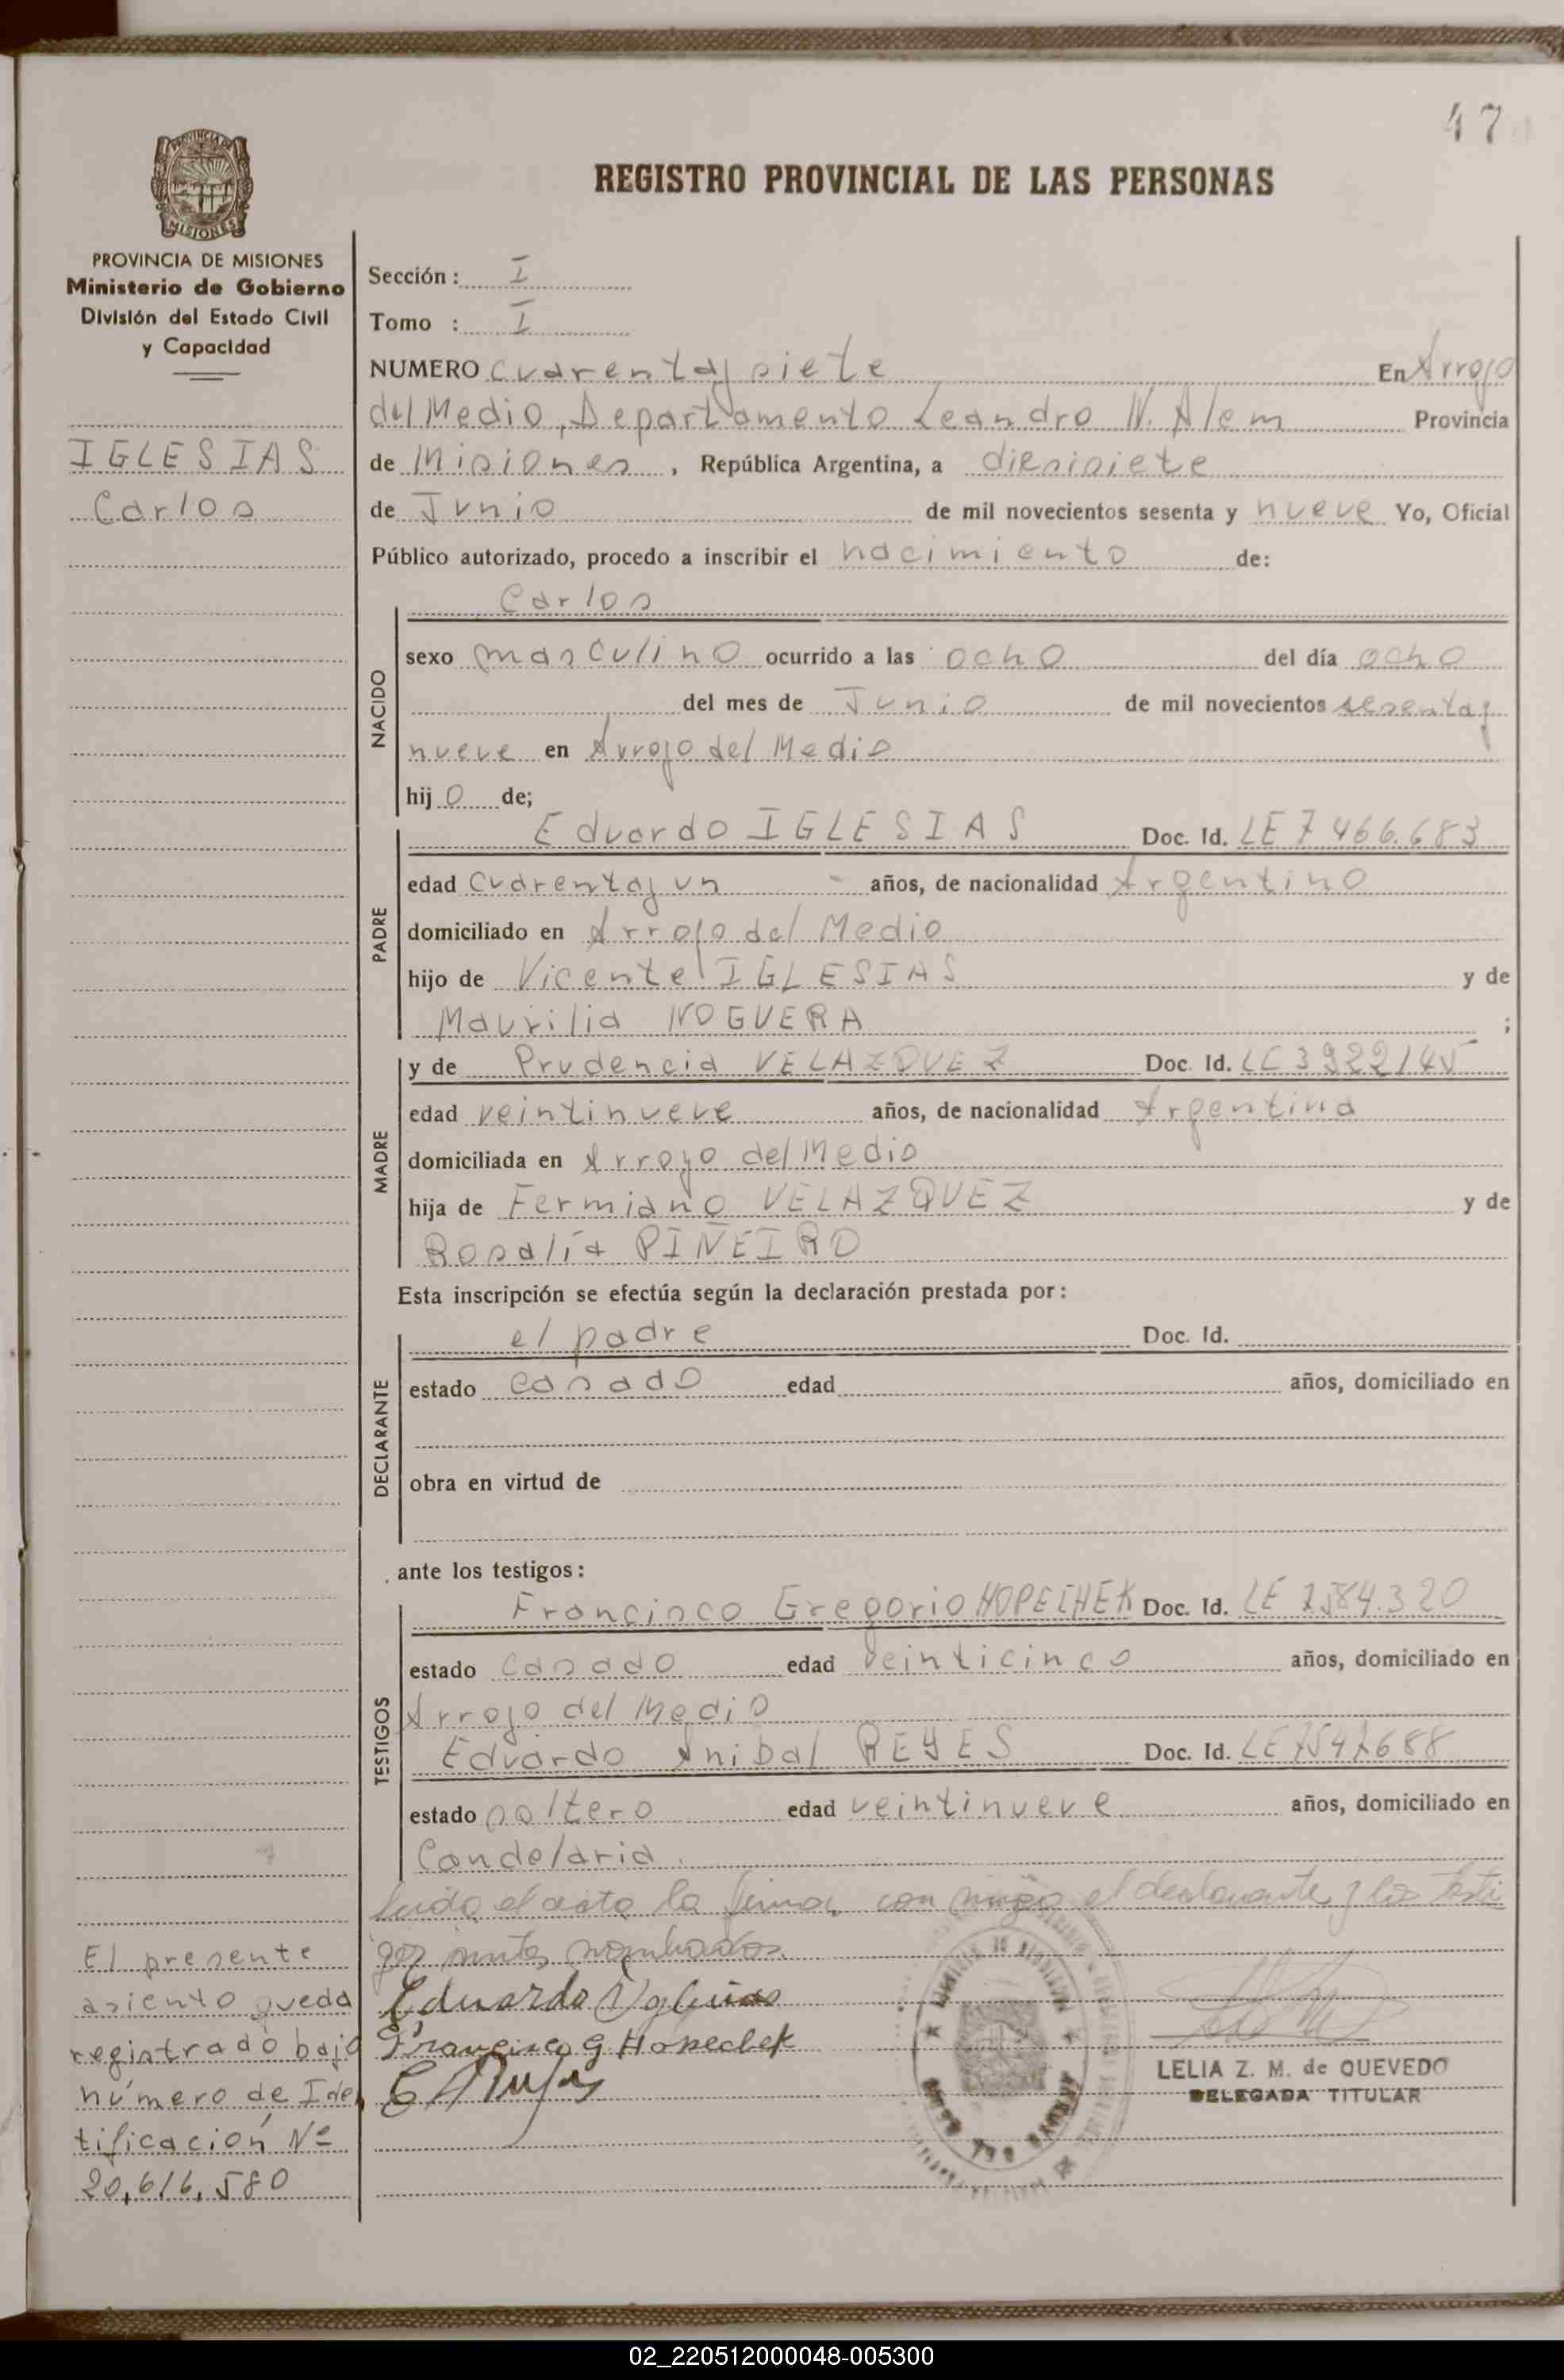 47
PROVINCIA DE MISIONES
REGISTRO PROVINCIAL DE LAS PERSONAS
PROVINCIA DE MISIONES
Ministerio de Gobierno
División del Estado Civil
y Capacidad
IGLESIAS
Carlos
Sección: I
Tomo : I
NUMERO cuarenta y siete En Arroyo
del Medio, Departamento Leandro N. Alem Provincia
de Misiones, República Argentina, a diesisiete
de Junio de mil novecientos sesenta y nueve Yo, Oficial
Público autorizado, procedo a inscribir el nacimiento de:
NACIDO
Carlos
sexo masculino ocurrido a las ocho del día ocho
del mes de Junio de mil novecientos sesenta y
nueve en Arroyo del Medio
hijo de;
PADRE
Eduardo IGLESIAS Doc. Id. LE 7.466.683
edad cuarenta y un años, de nacionalidad Argentino
domiciliado en Arroyo del Medio
hijo de Vicente IGLESIAS y de
Maurilia NOGUERA ;
MADRE
y de Prudencia VELAZQUEZ Doc. Id. LC 3922145
edad veintinueve años, de nacionalidad Argentina
domiciliada en Arroyo del Medio
hija de Fermiano VELAZQUEZ y de
Rosalía PIÑEIRO
Esta inscripción se efectúa según la declaración prestada por:
DECLARANTE
el padre Doc. Id.
estado casado edad años, domiciliado en
obra en virtud de
ante los testigos:
TESTIGOS
Francisco Gregorio HOPECHEK Doc. Id. LE 7.584.320
estado casado edad veinticinco años, domiciliado en
Arroyo del Medio
Eduardo Anibal REYES Doc. Id. LE 7547688
estado soltero edad veintinueve años, domiciliado en
Candelaria.
Leida el acta la firman con migo el declarante y los testi
gos antes nombrados.
Eduardo Yglesias
Francisco G Hopechek
LELIA Z. M. de QUEVEDO
DELEGADA TITULAR
ARROYO DEL MEDIO
El presente
asiento queda
registrado bajo
número de Iden
tificación Nº
20,616,580
02_220512000048-005300